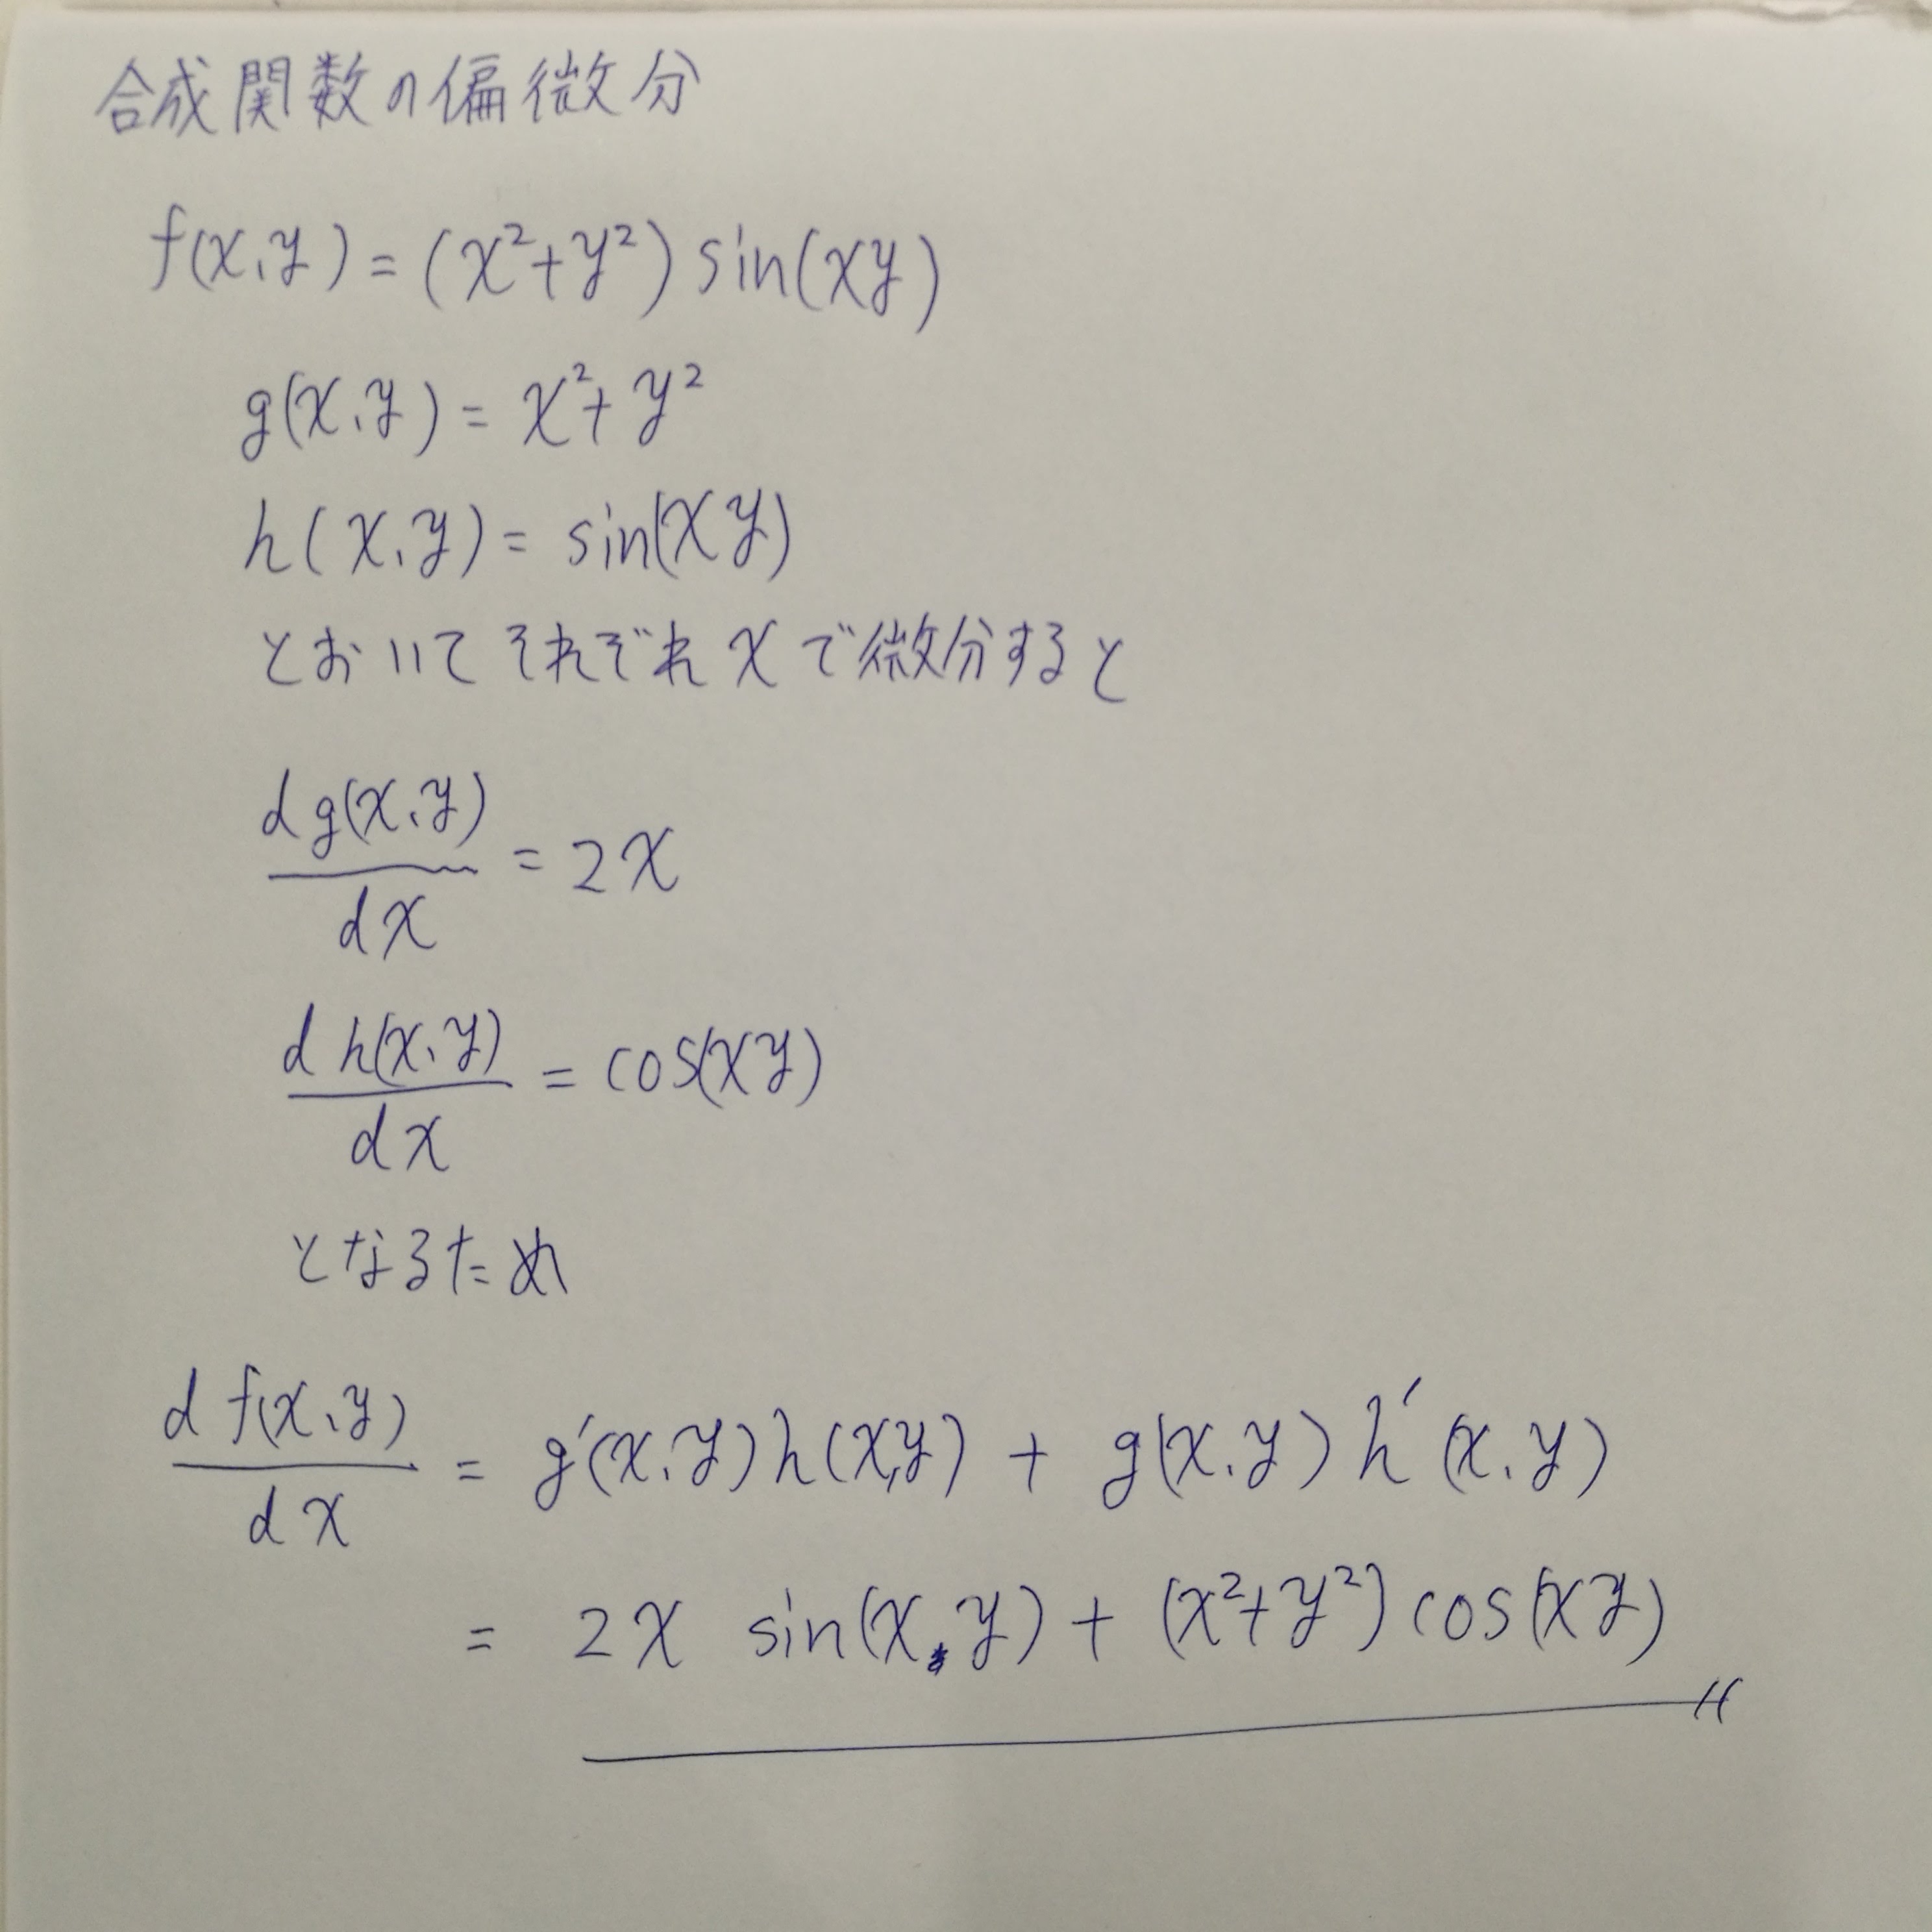 合成関数の偏微分
f(x,y) = (x²+y²) sin(xy)
g(x,y) = x²+y²
h(x,y) = sin(xy)
とおいてそれぞれxで微分すると
dg(x,y)/dx = 2x
dh(x,y)/dx = cos(xy)
となるため
df(x,y)/dx = g'(x,y)h(x,y) + g(x,y)h'(x,y)
= 2x sin(x,y) + (x²+y²) cos(xy)